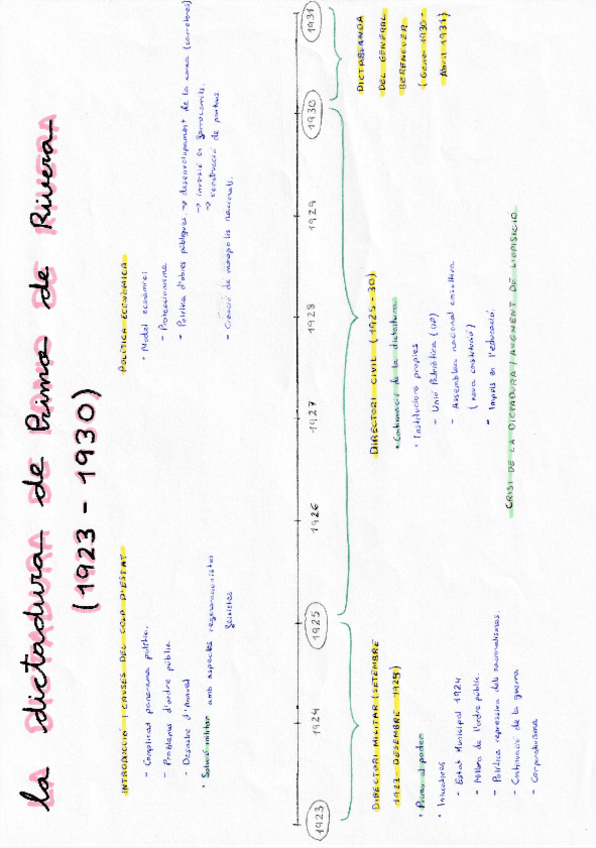 la dictadura de Primo de Rivera
(1923 - 1930)
INTRODUCCIÓ I CAUSES DEL COP D'ESTAT
- Complicat panorama polític.
- Problemes d'ordre públic
- Desastre d'Annual
• Solució militar amb aspectes regeneracionistes
feixistes
POLÍTICA ECONÒMICA
• Model econòmic:
- Proteccionisme
- Política d'obres públiques → desenvolupament de la xarxa (carreteres)
→ inversió en ferrocarrils.
→ construcció de pantans
- Creació de monopolis nacionals.
1923
1924
1925
1926
1927
1928
1929
1930
1931
DIRECTORI MILITAR (SETEMBRE
1923 - DESEMBRE 1925)
• Presa el poder
• Iniciatives
- Estat Municipal 1924
- Millora de l'ordre públic.
- Política repressiva dels nacionalismes.
- Continuació de la guerra
- Corporativisme
DIRECTORI CIVIL (1925 - 30)
• Continuació de la dictadura
• Institucions pròpies
- Unió Patriòtica (UP)
- Assemblea nacional consultiva
(nova constitució)
- Impuls en l'educació
CRISI DE LA DICTADURA I AUGMENT DE L'OPOSICIÓ
DICTABLANDA
DEL GENERAL
BERENGUER
(Gener 1930 -
Abril 1931)